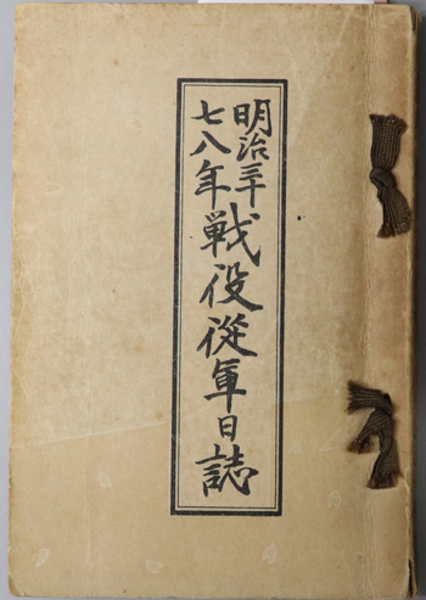 明治三十
七八年
戦役従軍日誌